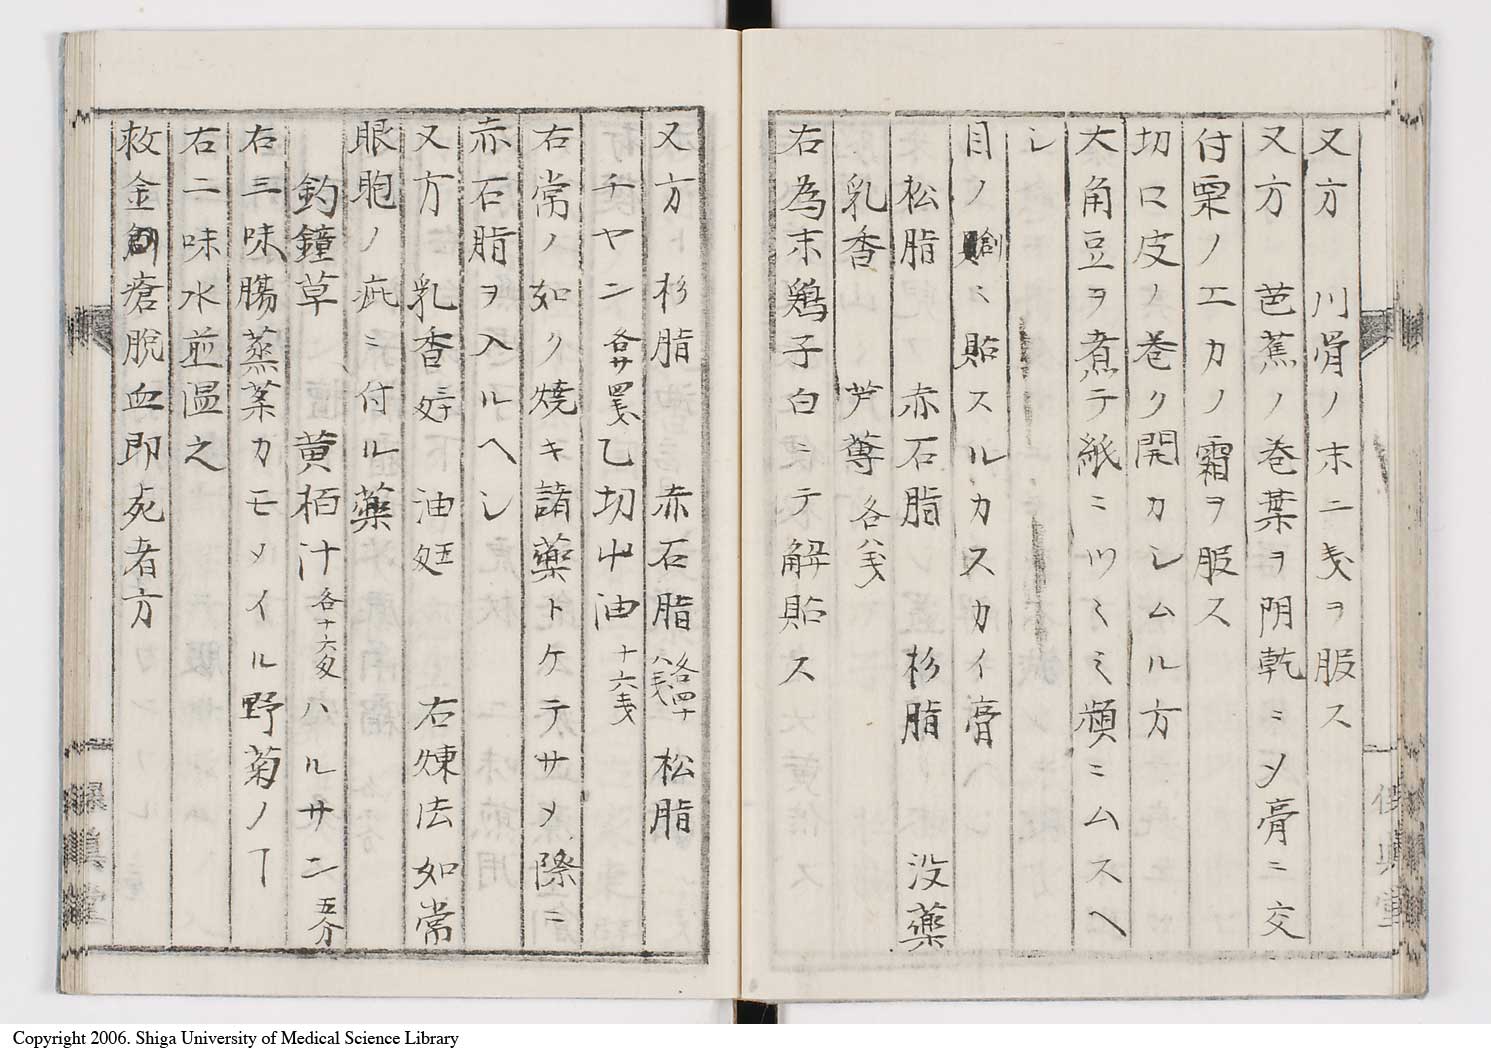 又方 川骨ノ末二戔ヲ服ス
又方 芭蕉ノ巻葉ヲ阴乾ミメ膏ニ交
付栗ノエカノ霜ヲ服ス
切口皮ノ巻ク開カシムル方
大角豆ヲ煮テ紙ミツミミ頻ニムスヘ
シ
目ノ創ミ貼スルカスカイ膏
松脂 赤石脂 杉脂 没藥
乳香 芦薈 各八戔
右為末鶏子白ニテ解貼ス
又方ト 杉脂 赤石脂 各四十八戔 松脂
チヤン 各廿四戔 乙切中油 十六戔
右常ノ如ク焼キ諸藥トケテサメ際ニ
赤石脂ヲ入ルヘシ
又方 乳香 油 右煉法如常
眼胞ノ疵ミ付ル藥
釣鐘草 黄栢汁 各十六匁 ハルサン 五分
右三味腸蒸薬カモメイル野菊ノ丅
右二味水煎温之
救金創瘡脱血即死者方
俊真堂
Copyright 2006. Shiga University of Medical Science Library